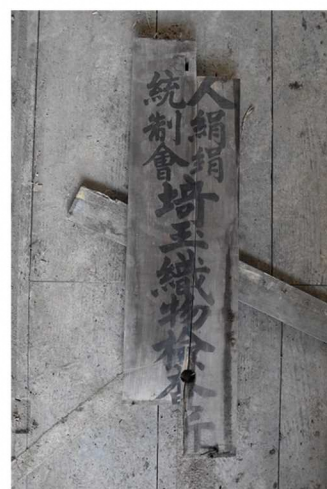 人絹絹
統制會
埼玉織物検査所